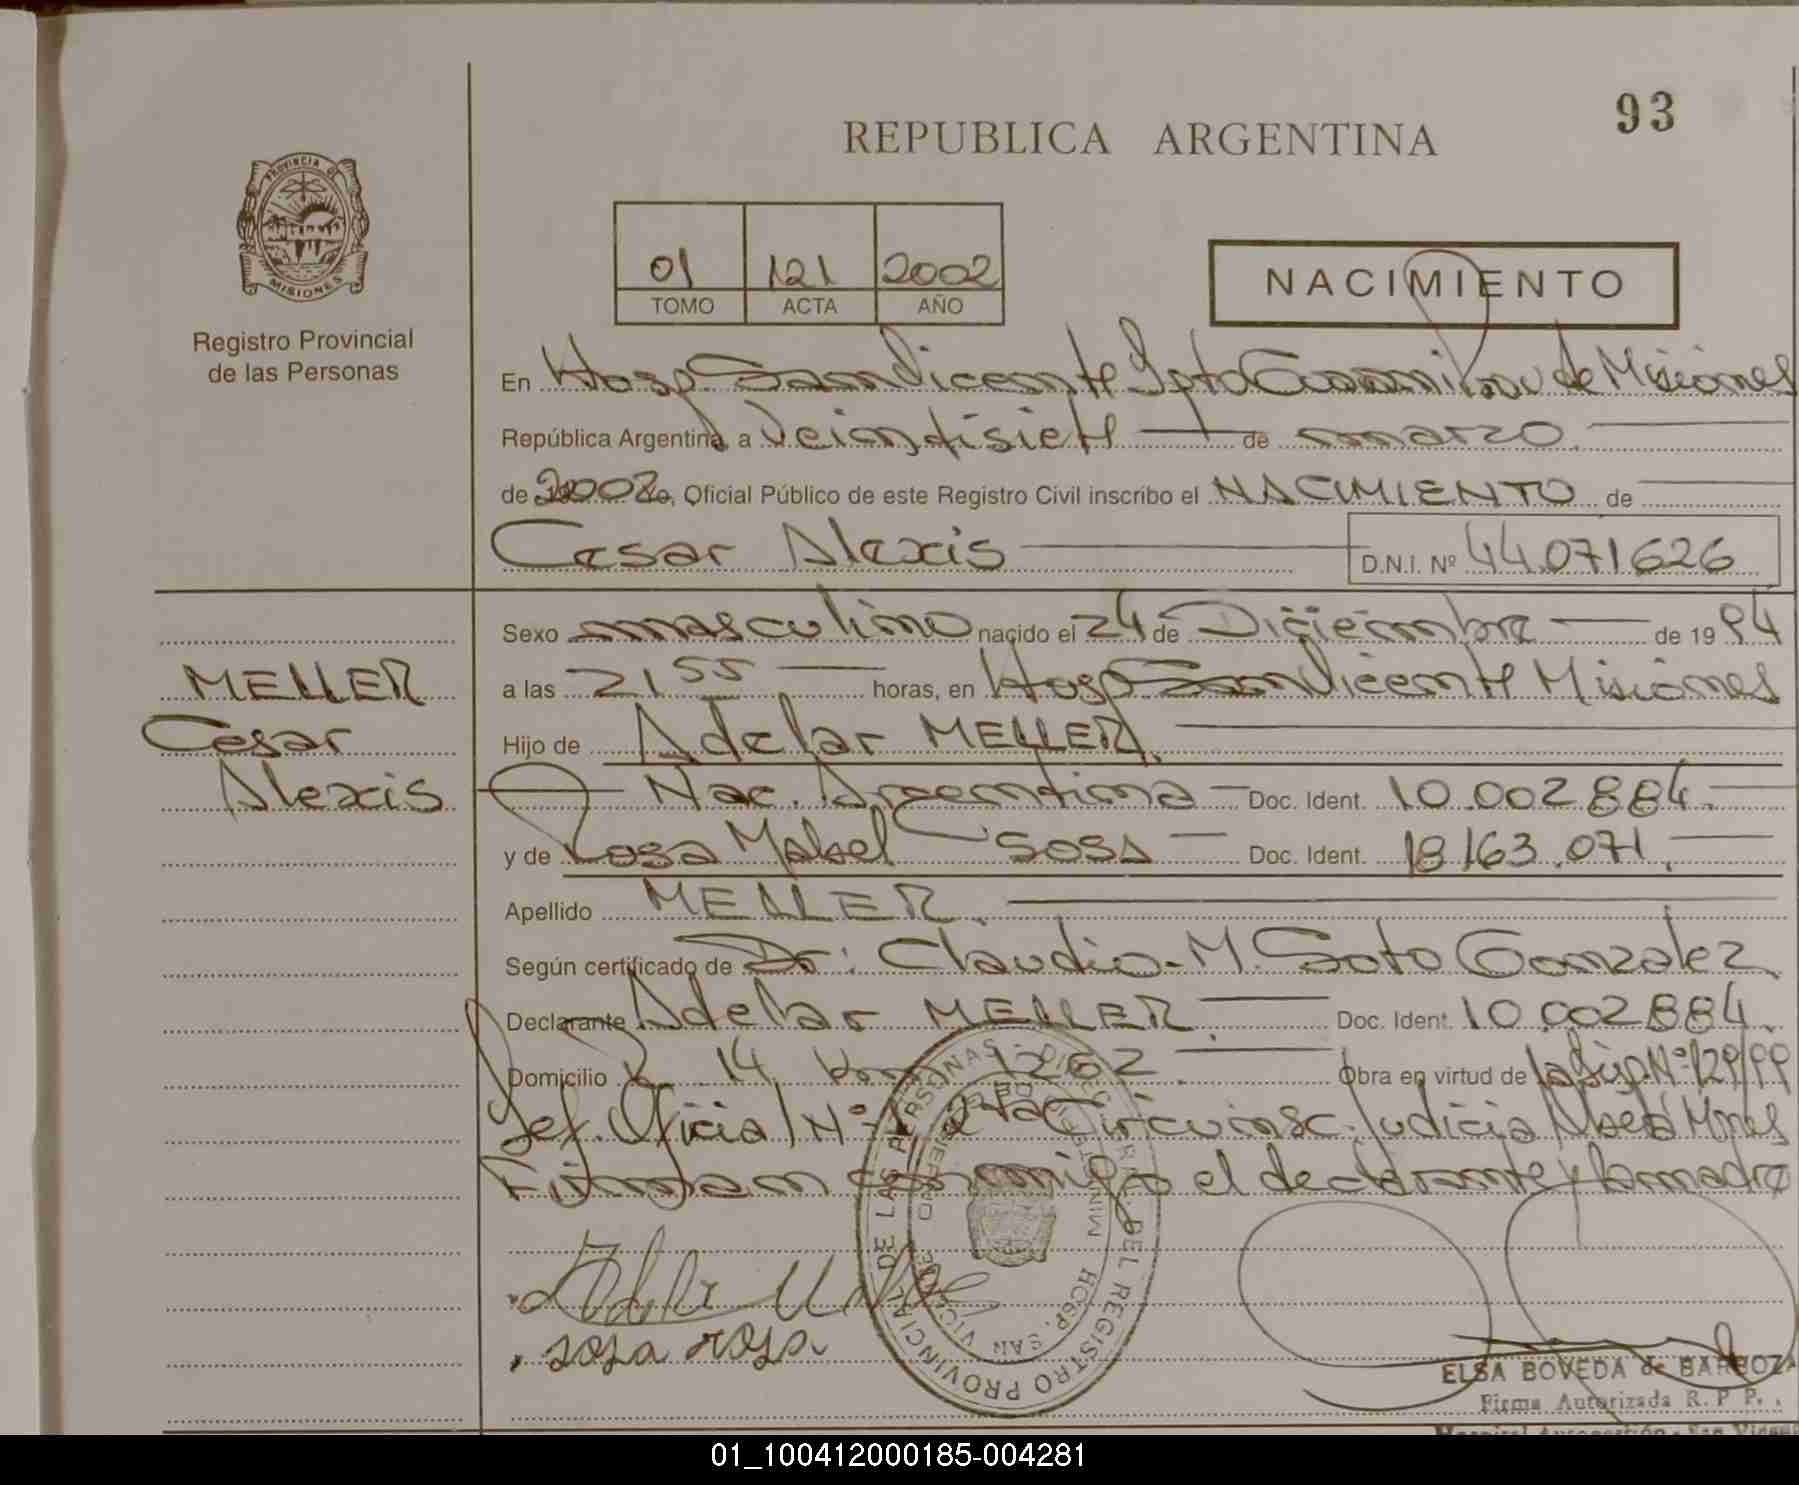 93
REPUBLICA ARGENTINA
PROVINCIA DE
MISIONES
Registro Provincial
de las Personas
01 121 2002
TOMO ACTA AÑO
NACIMIENTO
En Hosp. San Vicente Dpto Guaraní Prov de Misiones
República Argentina a Veintisiete de marzo
de 2002 yo, Oficial Público de este Registro Civil inscribo el NACIMIENTO de
Cesar Alexis D.N.I. Nº 44.071626
Sexo masculino nacido el 24 de Diciembre de 19 94
MELLER
Cesar
Alexis
a las 21 55 horas, en Hosp San Vicente Misiones
Hijo de Adelar MELLER
Nac. Argentina Doc. Ident. 10.002884.
y de Rosa Mabel SOSA Doc. Ident. 18163.071.
Apellido MELLER.
Según certificado de Dr: Claudio M. Soto Gonzalez
Declarante Adelar MELLER. Doc. Ident. 10.002884.
Domicilio R. 14 km 1262. Obra en virtud de la Disp. Nº 129/99
Def. Oficial Nº 1 Circunsc. Judicial Oberá Mnes
Firman conmigo el declarante y la madre
sosa rosa
DIREC. GRAL. DEL REGISTRO PROVINCIAL DE LAS PERSONAS
HOSP. SAN VICENTE
ELSA BOVEDA de BARBOZA
Firma Autorizada R. P. P.
Hospital Autogestión - San Vicente
01_100412000185-004281